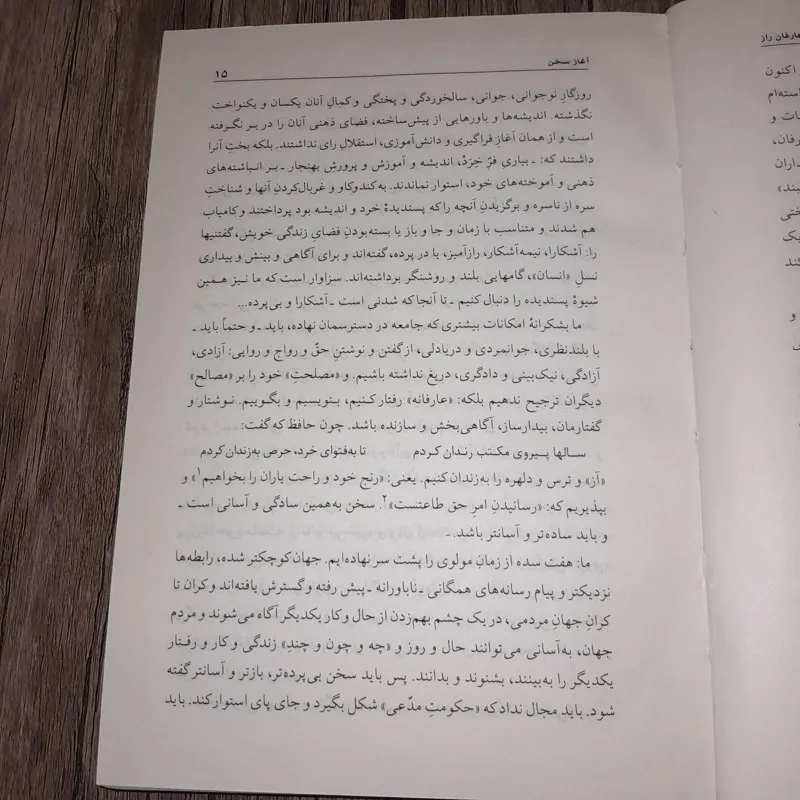 آغاز سخن ۱۵
روزگارِ نوجوانی، جوانی، سالخوردگی و پختگی و کمالِ آنان یکسان و یکنواخت
نگذشته. اندیشه‌ها و باورهایی از پیش‌ساخته، فضای ذهنی آنان را در بر نگرفته
است و از همان آغازِ فراگیری و دانش‌آموزی، استقلالِ رای نداشتند. بلکه بختِ آنرا
داشتند که: ـ بیاریِ فرّ خِرَدْ، اندیشه و آموزش و پرورشِ بهنجار ـ بـر انـباشته‌های
ذهنی و آموخته‌های خود، استوار نماندند. به‌کندوکاو و غربال‌کردنِ آنها و شناختِ
سره از ناسره و برگزیدنِ آنچه را که پسندیدهٔ خرد و اندیشه بود پرداختند و کامیاب
هم شدند و متناسب با زمان و جا و باز یا بسته‌بودنِ فضایِ زندگی خویش، گفتنیها
را: آشکارا، نیمه‌آشکار، رازآمیز، یا در پرده، گفته‌اند و برای آگاهی و بینش و بیداری
نسلِ «انسان»، گامهایی بلند و روشنگر برداشته‌اند. سزاوار است که ما نـیز هـمین
شیوهٔ پسندیده را دنبال کنیم ـ تا آنجا که شدنی است ـ آشکارا و بی‌پرده...
ما بشکرانهٔ امکانات بیشتری که جامعه در دسترسمان نهاده، باید ـ و حتماً باید ـ
با بلندنظری، جوانمردی و دریادلی، از گفتن و نوشتنِ حقّ و رواج و روایی: آزادی،
آزادگی، نیک‌بینی و دادگری، دریغ نداشته باشیم. و «مصلحتِ» خود را بر «مصالح»
دیگران ترجیح ندهیم بلکه: «عارفانه» رفتار کـنیم، بـنویسیم و بگـوییم. نـوشتار و
گفتارمان، بیدارساز، آگاهی‌بخش و سازنده باشد. چون حافظ که گفت:
سـالها پـیروی مکـتب رنـدان کـردم تا به‌فتوای خرد، حرص به‌زندان کردم
«آز» و ترس و دلهره را به‌زندان کنیم. یعنی: «رنج خود و راحت یاران را بخواهیم۱» و
بپذیریم که: «رسانیدنِ امرِ حق طاعتست»۲. سخن به‌همین سادگی و آسانی است ـ
و باید ساده‌تر و آسانتر باشد. ـ
ما: هفت سده از زمانِ مولوی را پشت سر نهاده‌ایم. جهان کوچکتر شده، رابطه‌ها
نزدیکتر و پیام رسانه‌های همگانی ـ ناباورانه ـ پیش رفته و گسترش یافته‌اند و کران تا
کرانِ جهانِ مردمی، در یک چشم بهم‌زدن از حال و کار یکدیگر آگاه می‌شوند و مردم
جهان، به‌آسانی می‌توانند حال و روز و «چه و چون و چندِ» زندگی و کار و رفـتار
یکدیگر را به‌بینند، بشنوند و بدانند. پس باید سخن بی‌پرده‌تر، بازتر و آسانتر گفته
شود. باید مجال نداد که «حکومتِ مدّعی» شکل بگیرد و جای پای استوار کند. باید
عارفان راز
اکنون